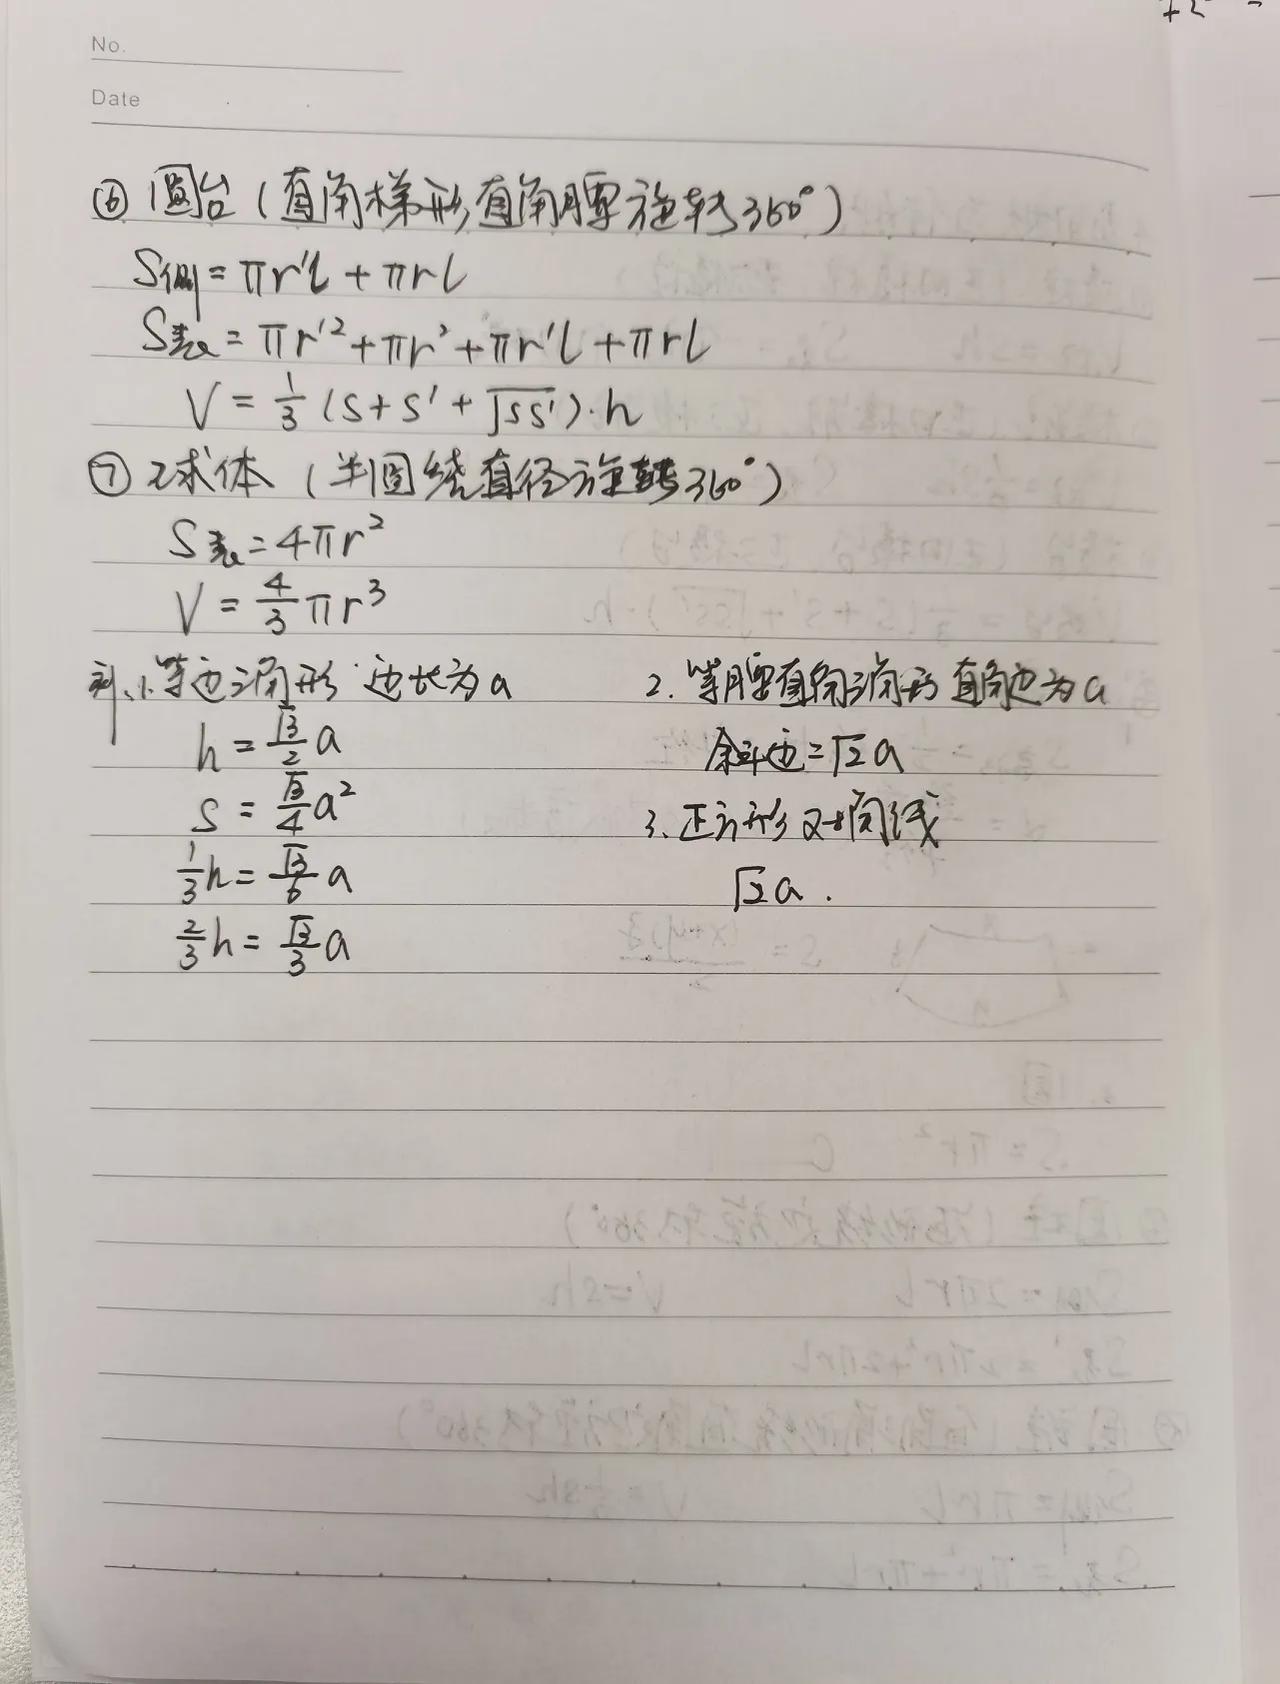 No.
Date
⑥ 圆台（直角梯形直角腰旋转360°）
S侧 = πr'l + πrl
S表 = πr'² + πr² + πr'l + πrl
V = 1/3 (S + S' + √SS')·h
⑦ 球体（半圆绕直径旋转360°）
S表 = 4πr²
V = 4/3 πr³
1. 等边三角形 边长为a
h = √3/2 a
S = √3/4 a²
1/3 h = √3/6 a
2/3 h = √3/3 a
2. 等腰直角三角形 直角边为a
斜边 = √2 a
3. 正方形对角线
√2 a.